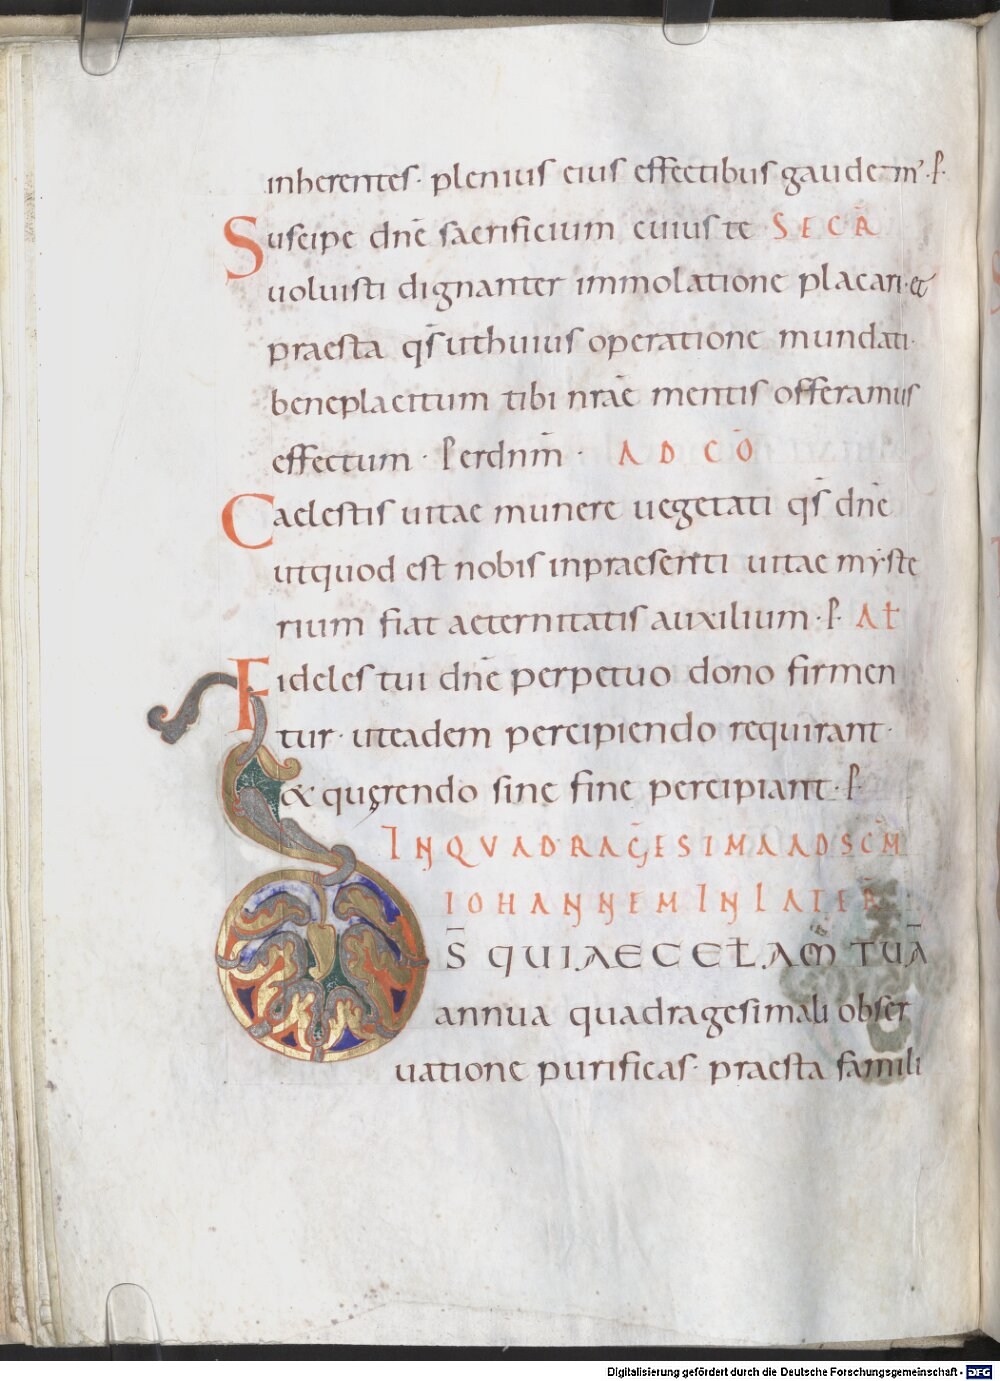 inherentes· plenius eius effectibus gaudeam'· P·
Suscipe dnē sacrificium cuius te · SECĀ
uoluisti dignanter immolatione placari· et
praesta qs̄ ut huius operatione mundati·
beneplacitum tibi nrāe mentis offeramus
effectum · Per dnm̄ · AD CŌ
Caelestis uitae munere uegetati qs̄ dnē
ut quod est nobis in praesenti uitae myste
rium fiat aeternitatis auxilium · P· AŁ
Fideles tui dnē perpetuo dono firmen
tur · ut eadem percipiendo requirant·
& quęrendo sine fine percipiant · P·
IN QVADRAḠESIMA AD SCM̄
IOHANNEM IN LATER̄
D S̄ QUI AECCEŁAM TUĀ
annua quadragesimali obser
uatione purificas· praesta famili
Digitalisierung gefördert durch die Deutsche Forschungsgemeinschaft - DFG